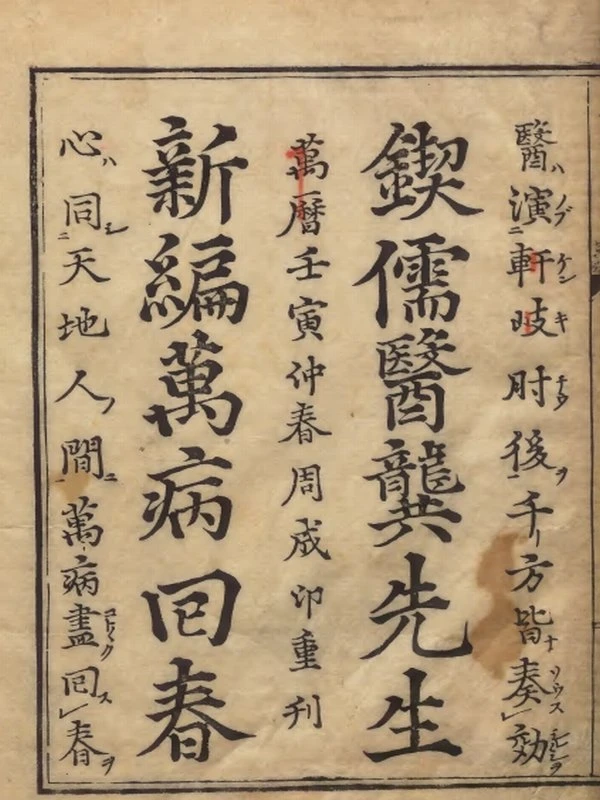 醫ハ演二ノブ軒ケン岐キ肘チウ後一ヲ千方皆ナ奏レソウス効ヲ
鍥儒醫龔先生
萬曆壬寅仲春周成印重刊
新編萬病回春
心ハ同二シ天地人ノ間一ニ萬病盡コトゴトク回レス春ヲ